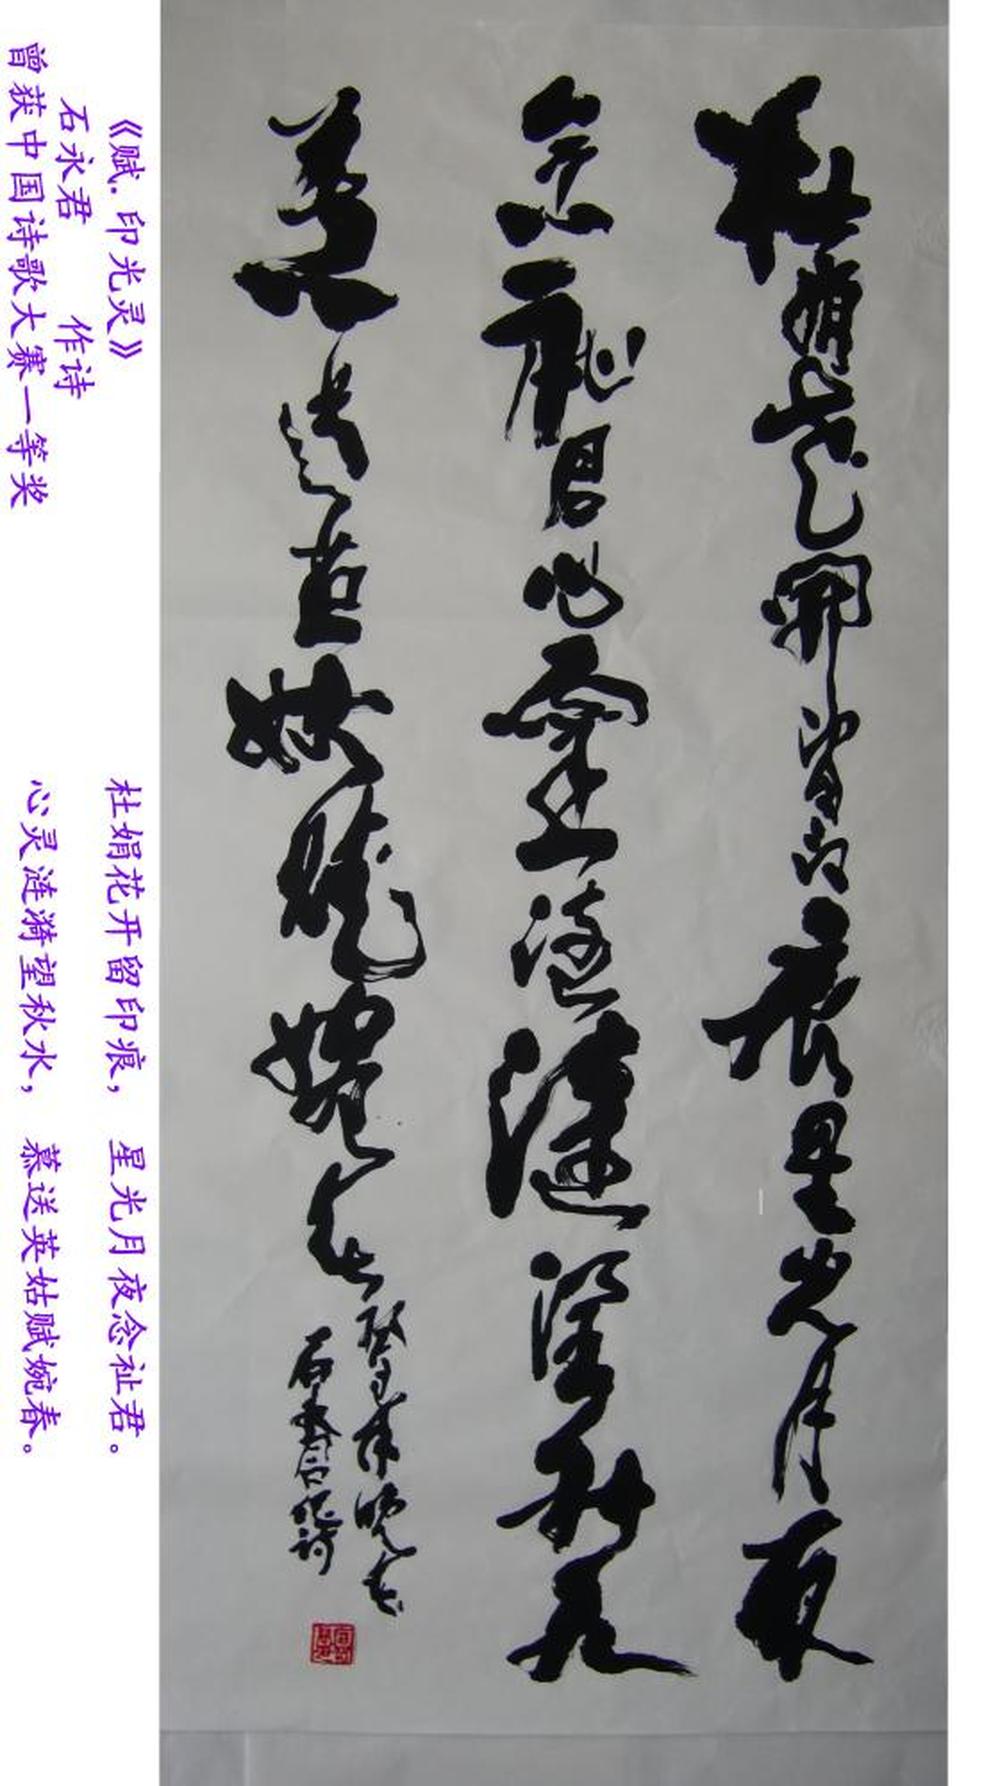 杜鹃花開留印痕星光月夜
念祉君心灵涟漪望秋水
慕送英姑赋婉春
石永君作诗
《赋.印光灵》
石永君 作诗
曾获中国诗歌大赛一等奖
杜鹃花开留印痕， 星光月夜念祉君。
心灵涟漪望秋水， 慕送英姑赋婉春。